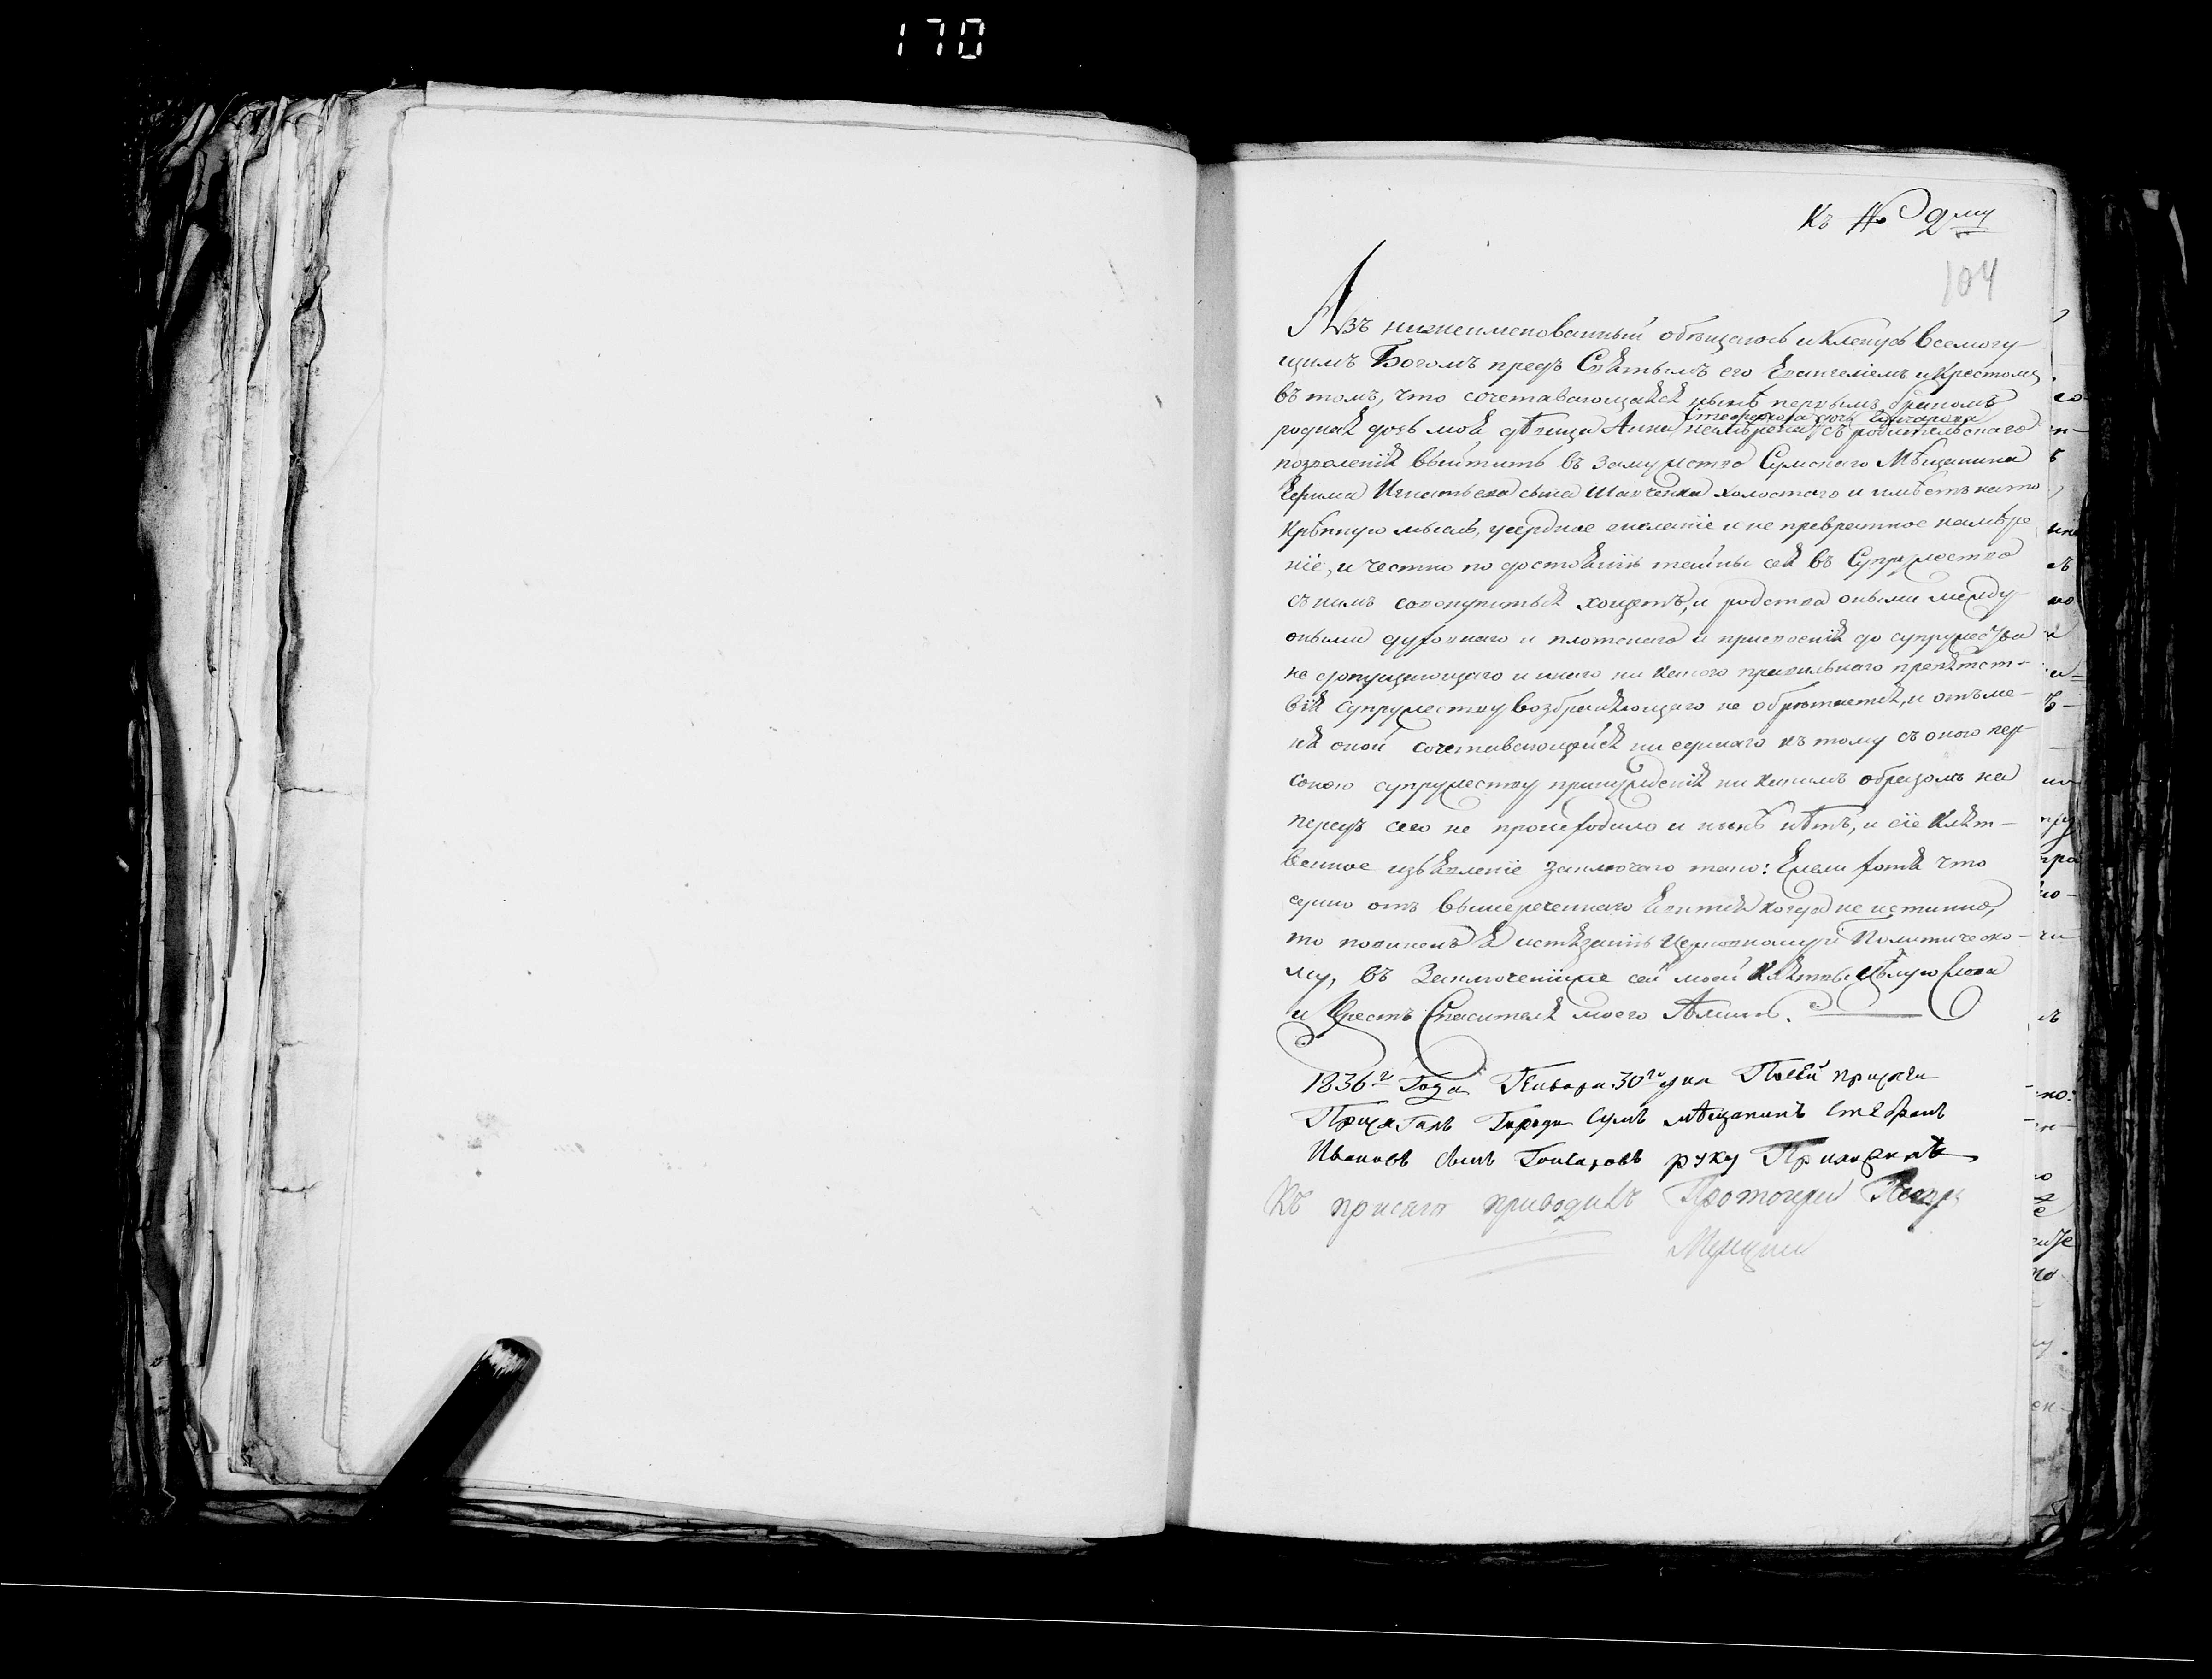 170
Къ № 2му
104
Азъ нижеименованный обѣщаюсь и кленусь всемогу-
щимъ Богомъ предъ Святымъ его Евангеліемъ и Крестомъ
въ томъ, что сочетавающаяся нынѣ первымъ бракомъ
Стефанова дочь Гончарова
родная дочь моя дѣвица Анна намѣрена съ родительскаго
позволенія выйтить въ замужство Сумскаго Мѣщанина
Ефима Игнатьева сына Шавченка холостаго и имѣетъ на то
крѣпкую мысль, усердное желаніе и не превратное намѣре
ніе, и честно по достоянію тайны сея въ Супружество
съ нимъ совокупиться хощетъ, и родства оными между
оными духовнаго и плотскаго и присвоенія до супружества
не допущающаго и инаго ни какого правильнаго препятст-
вія супружеству возбраняющаго не обрѣтается, и отъ ме-
ня оной сочетавающейся ни единаго къ тому съ оною пер-
соною супружеству принужденія ни какимъ образомъ на
передъ сего не происходило и нынѣ нѣтъ, и сіе клят-
венное изъявленіе заключаю тако: Ежели хотя что
едино отъ вышереченнаго явится когда не истинно,
то повиненъ я истязанію Церковному и Политическо-
му, въ Заключеніи же сей моей клятвы цѣлую слова
и Крестъ Спасителя моего Аминь.
1836го Года Января 30го дня По сей присяги
Присягалъ Города Сумъ мѣщанинъ Стефанъ
Ивановъ сынъ Гончаровъ руку Приложилъ
Къ присягѣ приводилъ Протоіерей